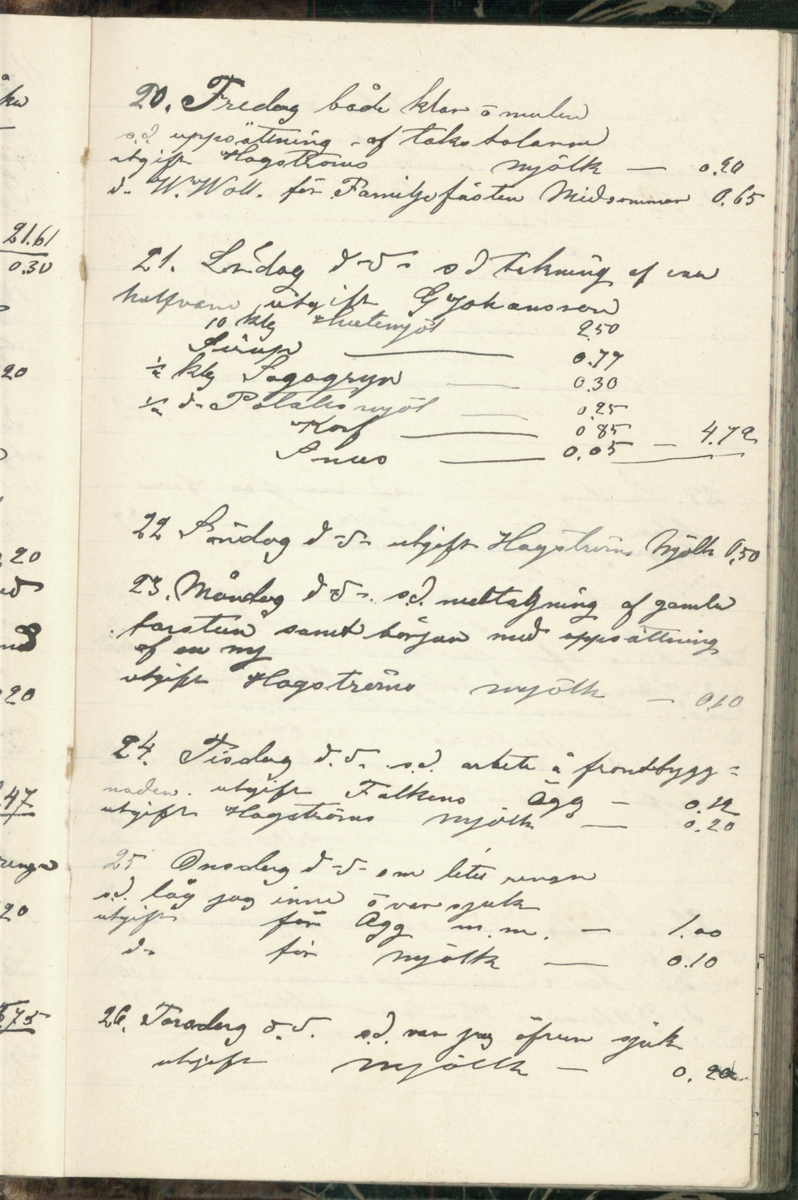 ka
21.61
0.30
20
20
20
47
20
20. Fredag både klar o mulen
s.d. uppsättning af takstolarne
utgift Hagströms mjölk — 0.20
d. W. Woll. för Familjefästen Midsommar 0.65
21. Lördag d-o- s d täkning af ena
halfvan utgift G Johansson
10 klg Hvetemjöl 2.50
Sirup — 0.77
½ klg Sagogryn — 0.30
½ d- Potatismjöl — 0.25
Korf — 0.85 — 4.72
Snus — 0.05
22 Söndag d-o- utgift Hagströms Mjölk 0,50
23. Måndag d-o-. s.d. nedtagning af gamla
farstun samt början med uppsättning
af en ny
utgift Hagströms mjölk — 0.10
24. Tisdag d.o. s.d. arbete å frontbygg=
naden. utgift Falkens Ägg — 0.12
utgift Hagströms mjölk — 0.20
25 Onsdag d-o- om litet rengn
s.d. låg jag inne o var sjuk
utgift för Ägg m.m. — 1.00
d- för mjölk — 0.10
26. Torsdag d.o. s.d. var jag äfven sjuk
utgift mjölk — 0.20